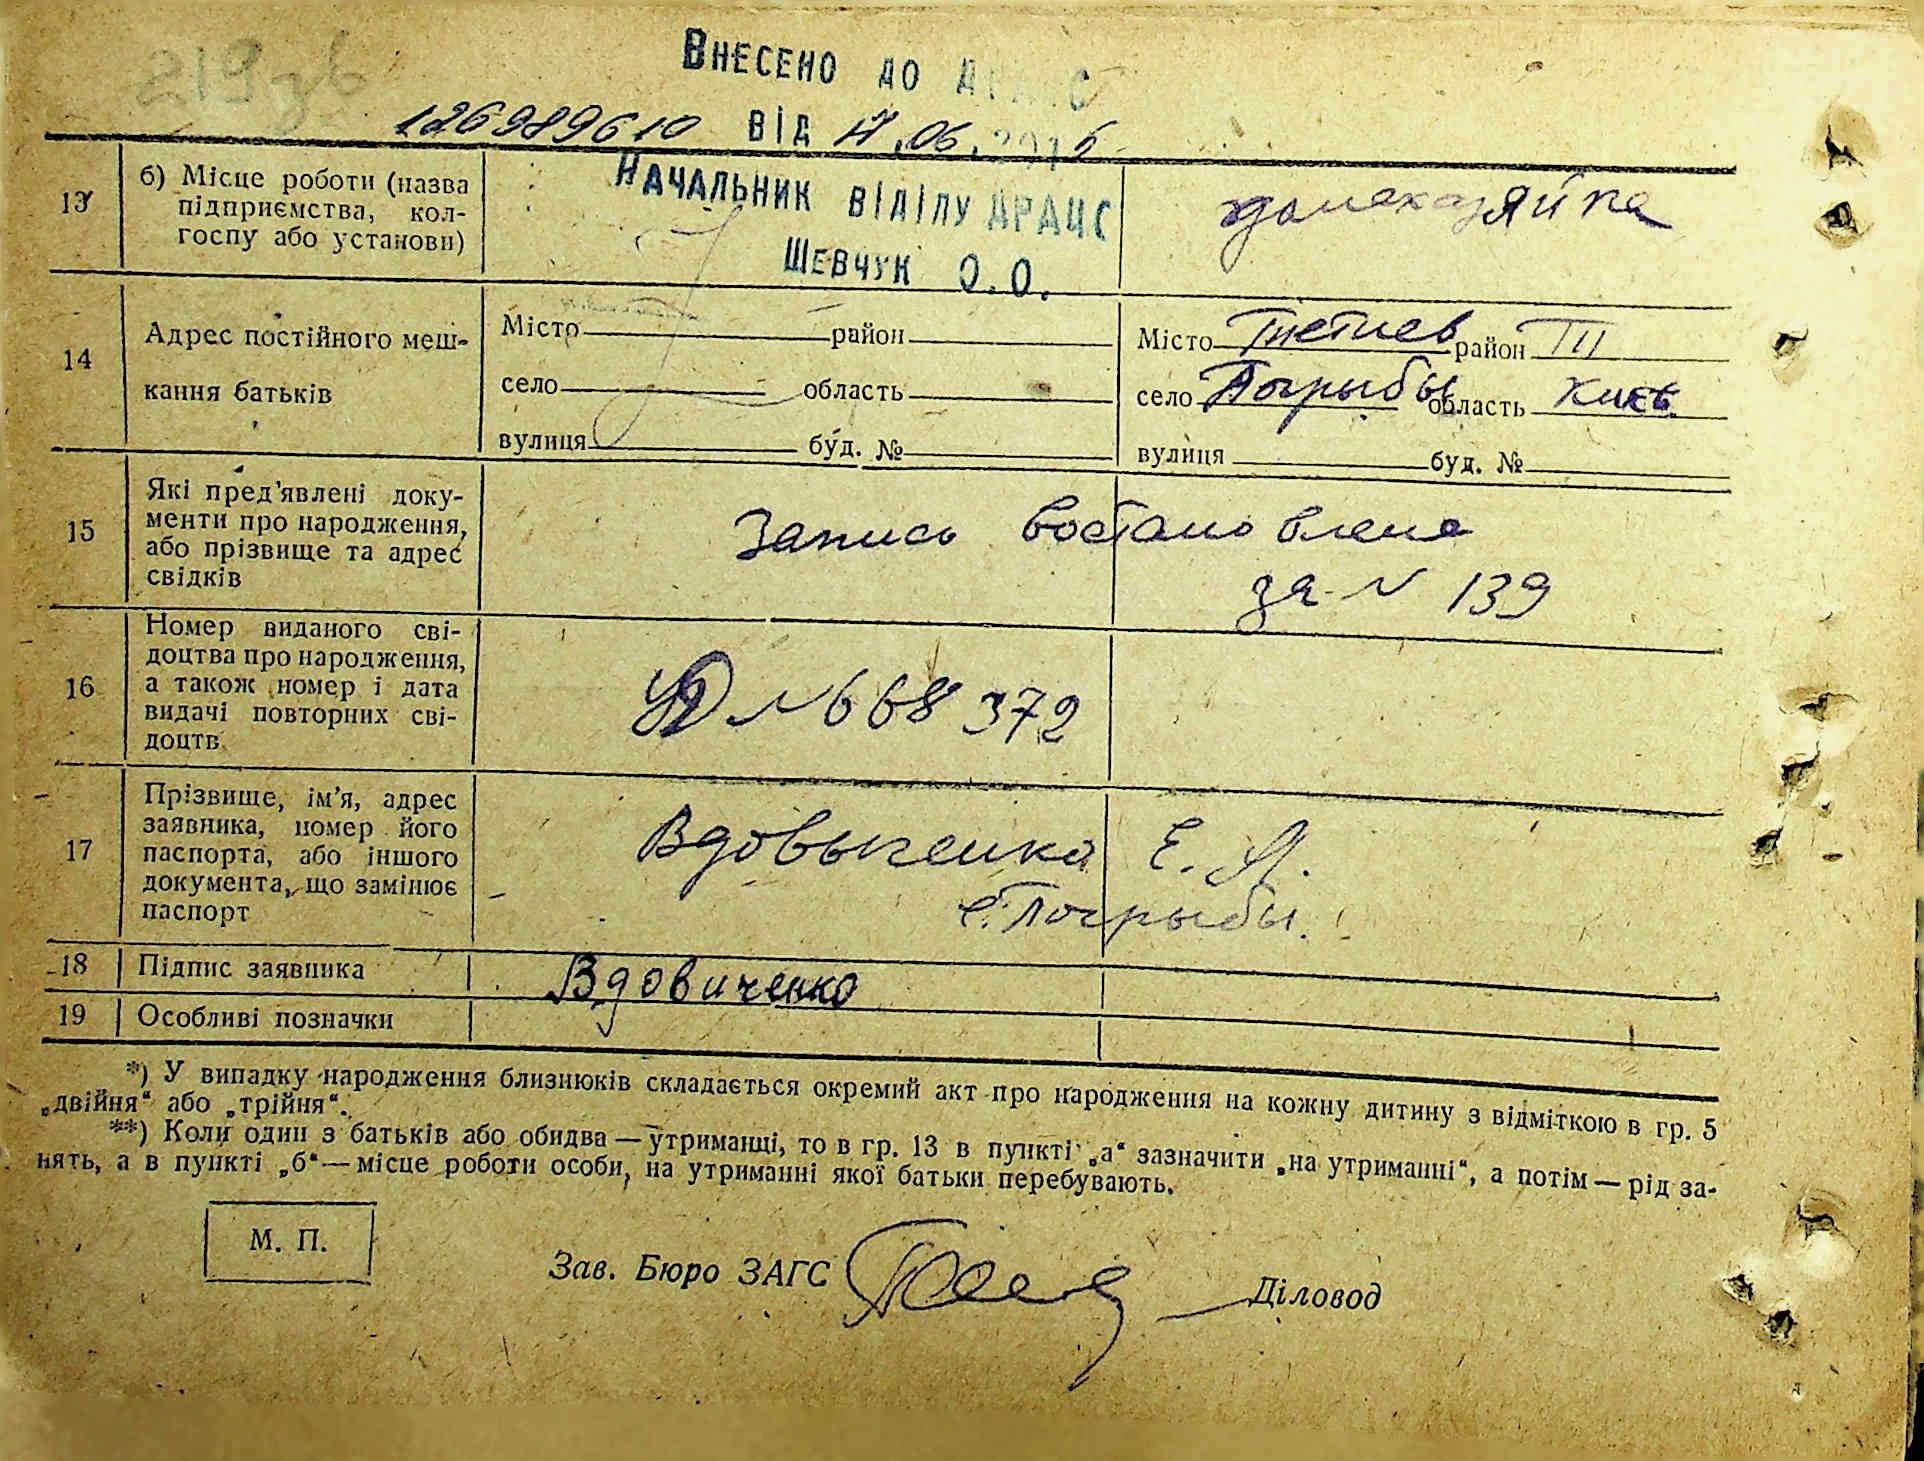 219 зв
Внесено до ДРАЦС
126989610 від 17.06.2015
Начальник відділу ДРАЦС
Шевчук О.О.
13 б) Місце роботи (назва підприємства, колгоспу або установи) домохазяйка
14 Адрес постійного мешкання батьків
Місто район Місто Тетиев район ТП
село область село Погрыбы область Києв.
вулиця буд. № вулиця буд. №
15 Які пред'явлені документи про народження, або прізвище та адрес свідків
Запись востановлена
за N 139
16 Номер виданого свідоцтва про народження, а також номер і дата видачі повторних свідоцтв
N 668372
17 Прізвище, ім'я, адрес заявника, номер його паспорта, або іншого документа, що замінює паспорт
Вдовыченко Е. Л.
с. Погрыбы.
18 Підпис заявника Вдовиченко
19 Особливі позначки
*) У випадку народження близнюків складається окремий акт про народження на кожну дитину з відміткою в гр. 5
„двійня“ або „трійня“.
**) Коли один з батьків або обидва — утриманці, то в гр. 13 в пункті „а“ зазначити „на утриманні“, а потім — рід за-
нять, а в пункті „б“ — місце роботи особи, на утриманні якої батьки перебувають.
М. П.
Зав. Бюро ЗАГС Діловод